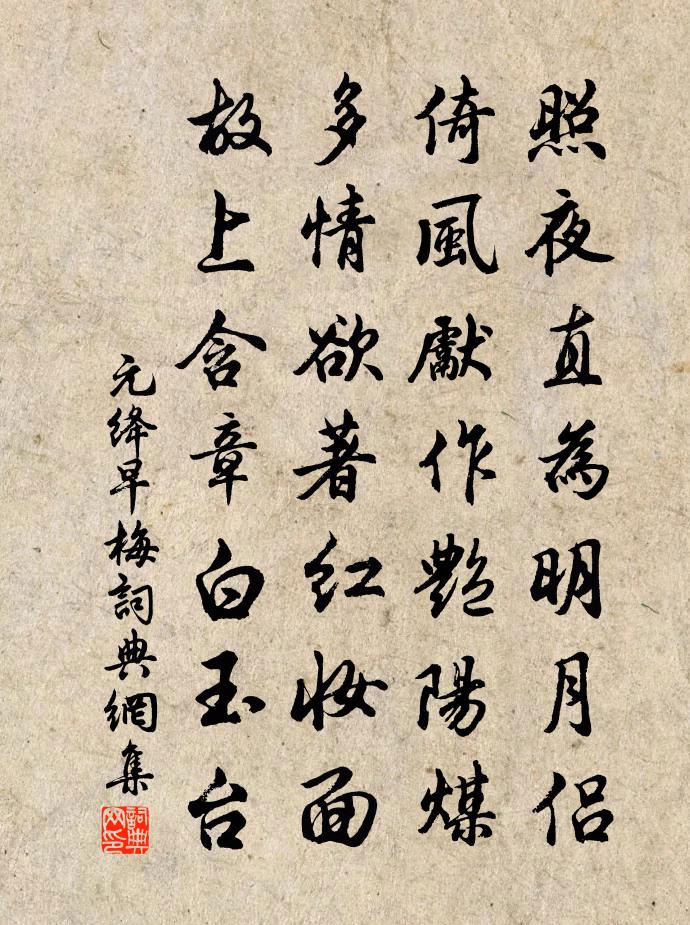 照夜直為明月侶
倚風獻作艷陽煤
多情欲著紅妝面
故上含章白玉台
元绛早梅詞典網集
詞典网印